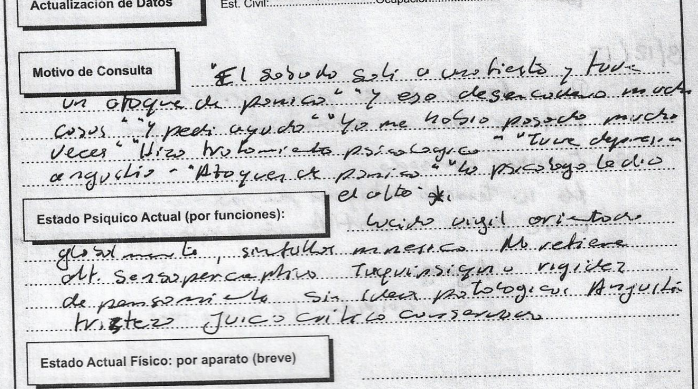 Actualización de Datos Est. Civil: Ocupación:
Motivo de Consulta "El sabado sali a una fiesta y tuve
un ataque de panico" "Y eso desencadeno mucha
cosas" "Y pedi ayuda" "Yo me habia pasado mucha
veces" "Hizo tratamiento psicologico - "Tuve depresion
angustia - "Ataques de panico" "La psicologa le dio
el alta *
Estado Psiquico Actual (por funciones): Lucido vigil orientado
globalmente, sin fallas mnesica No refiere
alt. Sensoperceptiva Taquipsiquia rigidez
de pensamiento Sin ideas patologicas Angustia
tristeza Juicio critico conservado
Estado Actual Físico: por aparato (breve)